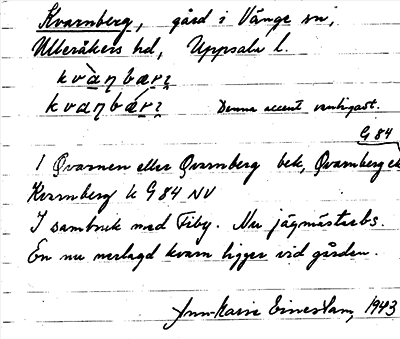 Kvarnberg, gård i Vänge sn,
Ulleråkers hd, Uppsala l.
kvàηbærz
kvaηbá̤rz Denna accent vanligast.
G 84
1 Qvarnen eller Qvarnberg bek, Qvarnberg ek
Kvarnberg k G 84 NV
I sambruk med Fiby. Nu jägmästarbs.
En nu nerlagd kvarn ligger vid gården.
Ann-Marie Einestam, 1943